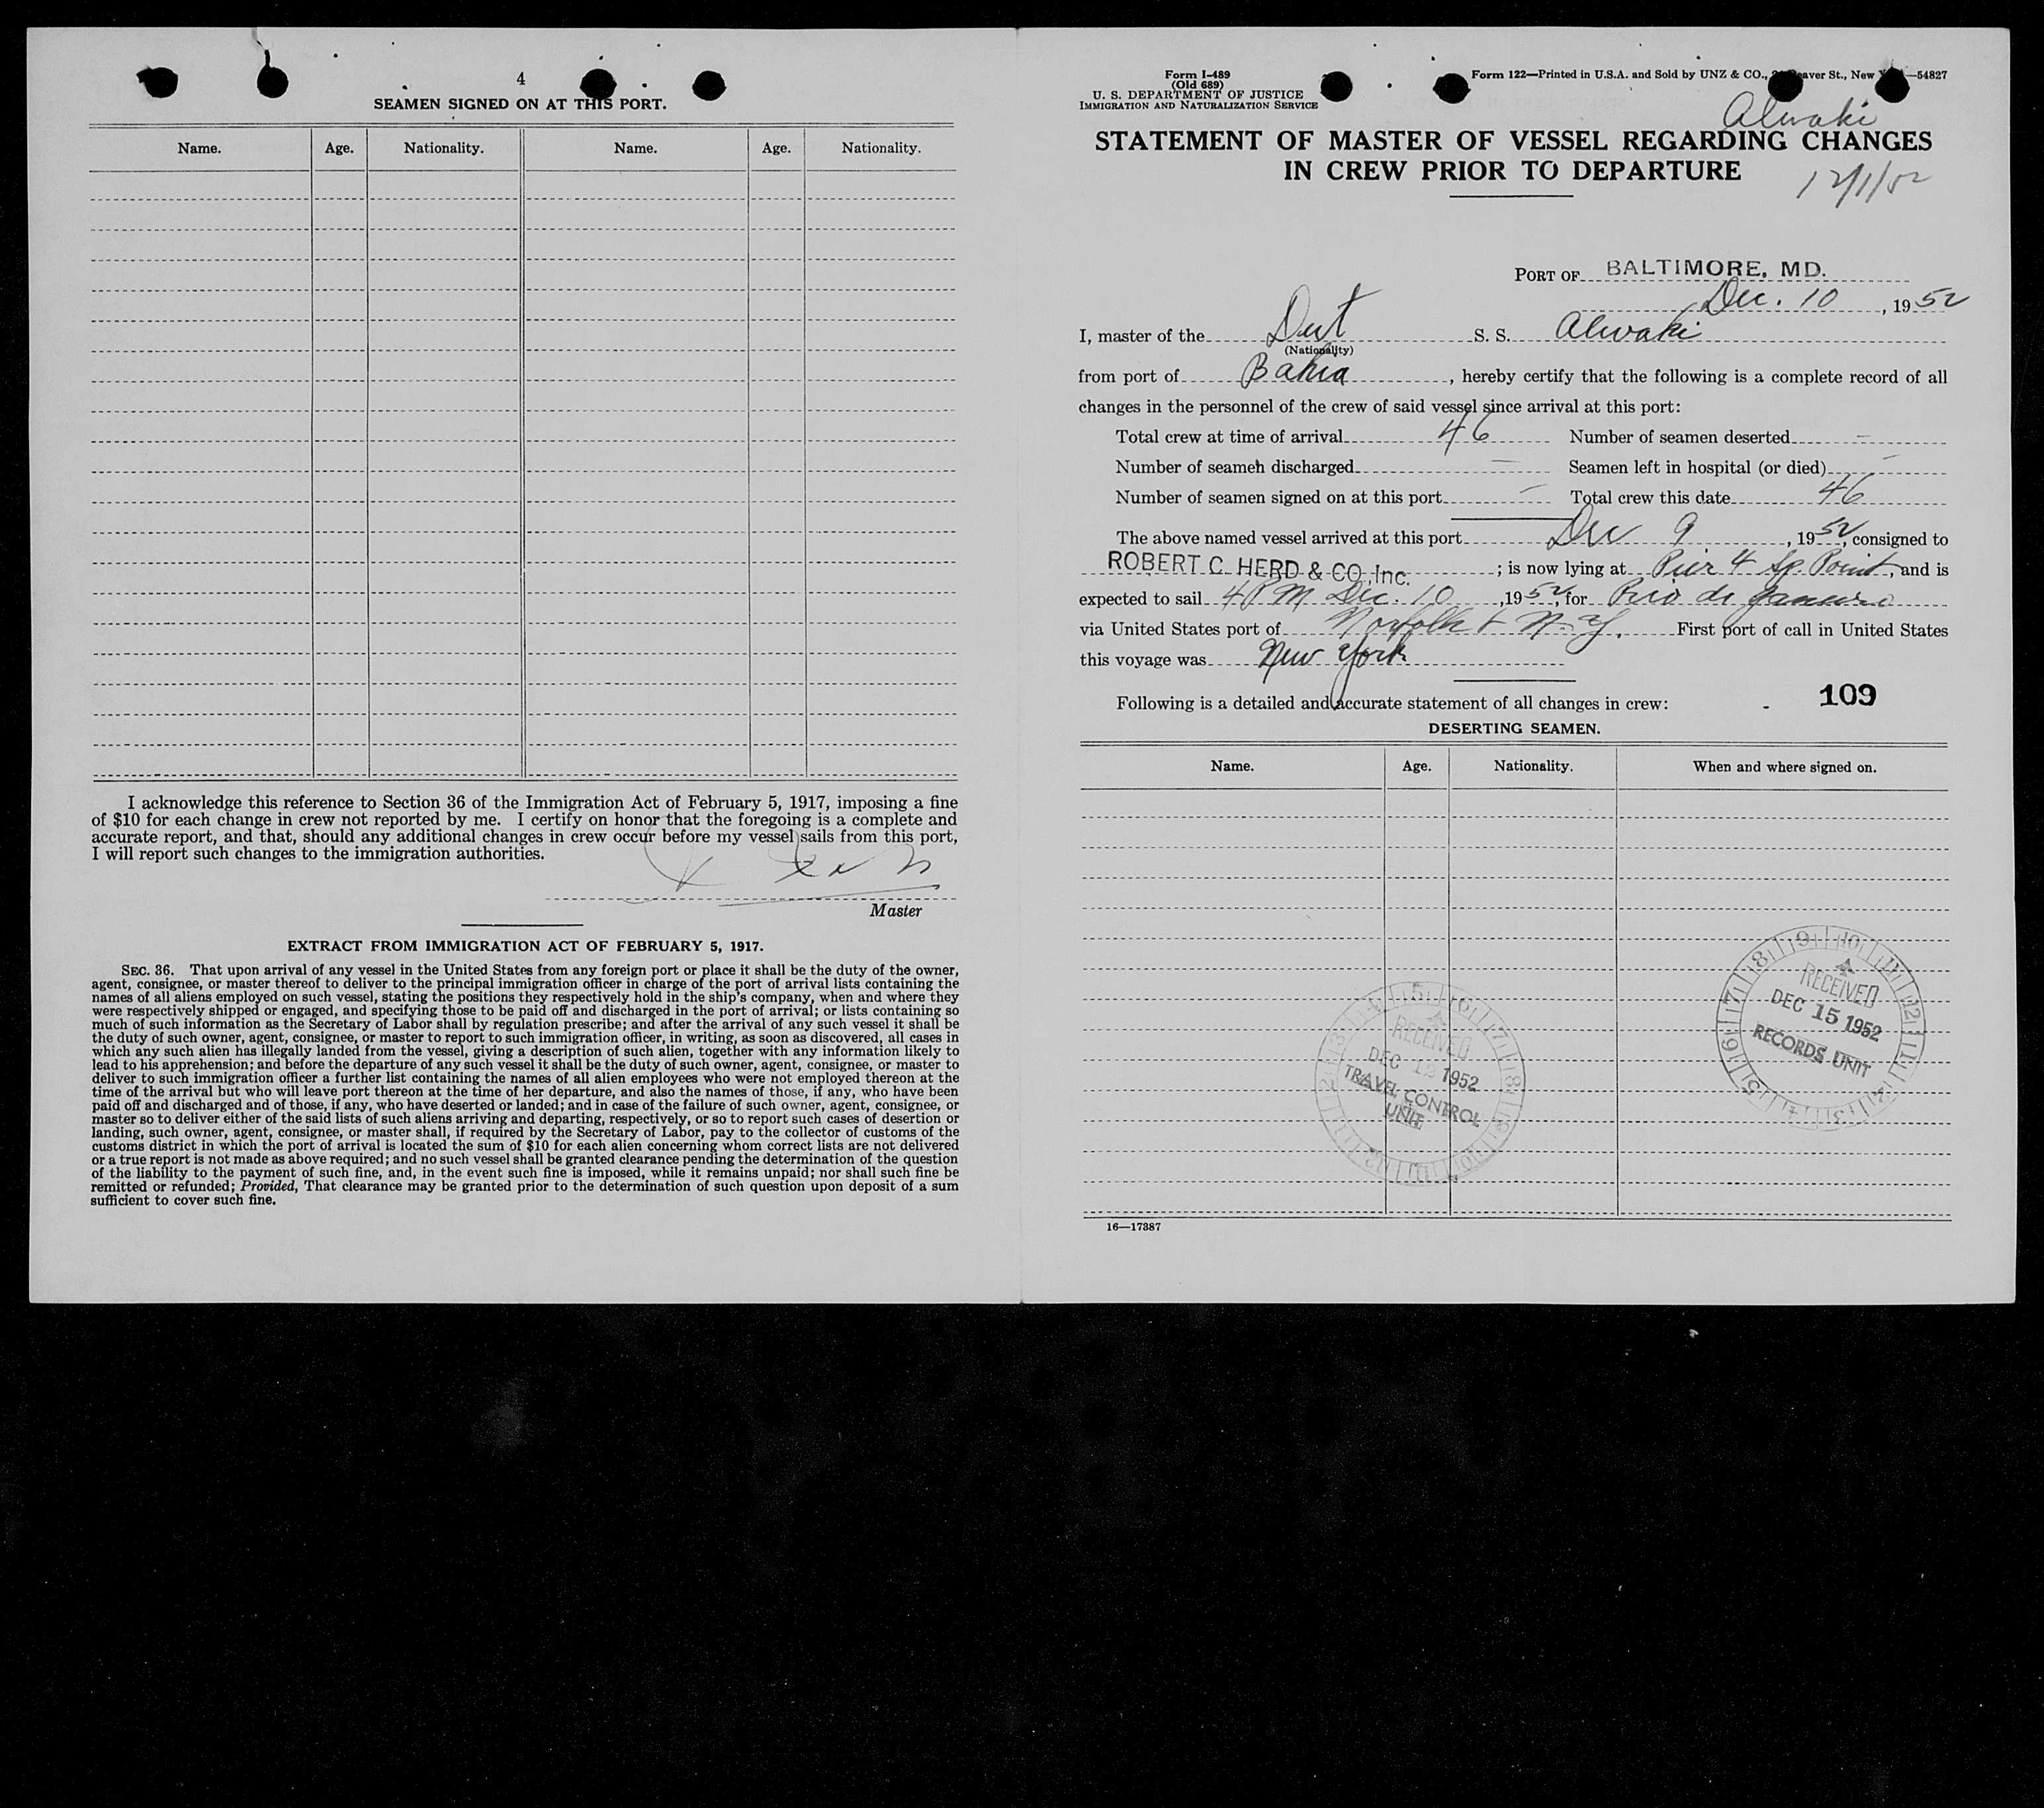 4
SEAMEN SIGNED ON AT THIS PORT.
Name. Age. Nationality. Name. Age. Nationality.
I acknowledge this reference to Section 36 of the Immigration Act of February 5, 1917, imposing a fine
of $10 for each change in crew not reported by me. I certify on honor that the foregoing is a complete and
accurate report, and that, should any additional changes in crew occur before my vessel sails from this port,
I will report such changes to the immigration authorities.
Master
EXTRACT FROM IMMIGRATION ACT OF FEBRUARY 5, 1917.
SEC. 36. That upon arrival of any vessel in the United States from any foreign port or place it shall be the duty of the owner,
agent, consignee, or master thereof to deliver to the principal immigration officer in charge of the port of arrival lists containing the
names of all aliens employed on such vessel, stating the positions they respectively hold in the ship's company, when and where they
were respectively shipped or engaged, and specifying those to be paid off and discharged in the port of arrival; or lists containing so
much of such information as the Secretary of Labor shall by regulation prescribe; and after the arrival of any such vessel it shall be
the duty of such owner, agent, consignee, or master to report to such immigration officer, in writing, as soon as discovered, all cases in
which any such alien has illegally landed from the vessel, giving a description of such alien, together with any information likely to
lead to his apprehension; and before the departure of any such vessel it shall be the duty of such owner, agent, consignee, or master to
deliver to such immigration officer a further list containing the names of all alien employees who were not employed thereon at the
time of the arrival but who will leave port thereon at the time of her departure, and also the names of those, if any, who have been
paid off and discharged and of those, if any, who have deserted or landed; and in case of the failure of such owner, agent, consignee, or
master so to deliver either of the said lists of such aliens arriving and departing, respectively, or so to report such cases of desertion or
landing, such owner, agent, consignee, or master shall, if required by the Secretary of Labor, pay to the collector of customs of the
customs district in which the port of arrival is located the sum of $10 for each alien concerning whom correct lists are not delivered
or a true report is not made as above required; and no such vessel shall be granted clearance pending the determination of the question
of the liability to the payment of such fine, and, in the event such fine is imposed, while it remains unpaid; nor shall such fine be
remitted or refunded; Provided, That clearance may be granted prior to the determination of such question upon deposit of a sum
sufficient to cover such fine.
Form I-489
(Old 689)
U. S. DEPARTMENT OF JUSTICE
IMMIGRATION AND NATURALIZATION SERVICE
Form 122—Printed in U.S.A. and Sold by UNZ & CO., St., New —54827
Alwaki
STATEMENT OF MASTER OF VESSEL REGARDING CHANGES
IN CREW PRIOR TO DEPARTURE
12/1/52
PORT OF BALTIMORE, MD.
Dec. 10, 1952
I, master of the Dut S. S. Alwaki
(Nationality)
from port of Bahia, hereby certify that the following is a complete record of all
changes in the personnel of the crew of said vessel since arrival at this port:
Total crew at time of arrival 46 Number of seamen deserted —
Number of seamen discharged — Seamen left in hospital (or died) —
Number of seamen signed on at this port — Total crew this date 46
The above named vessel arrived at this port Dec 9, 1952, consigned to
ROBERT C. HERD & CO., Inc.; is now lying at Pier 4 Sp. Point, and is
expected to sail 4 PM Dec. 10, 1952, for Rio de Janeiro
via United States port of Norfolk & N.Y. First port of call in United States
this voyage was New York
Following is a detailed and accurate statement of all changes in crew:
109
DESERTING SEAMEN.
Name. Age. Nationality. When and where signed on.
RECEIVED
DEC 15 1952
RECORDS UNIT
RECEIVED
DEC 1952
TRAVEL CONTROL
UNIT
16—17387